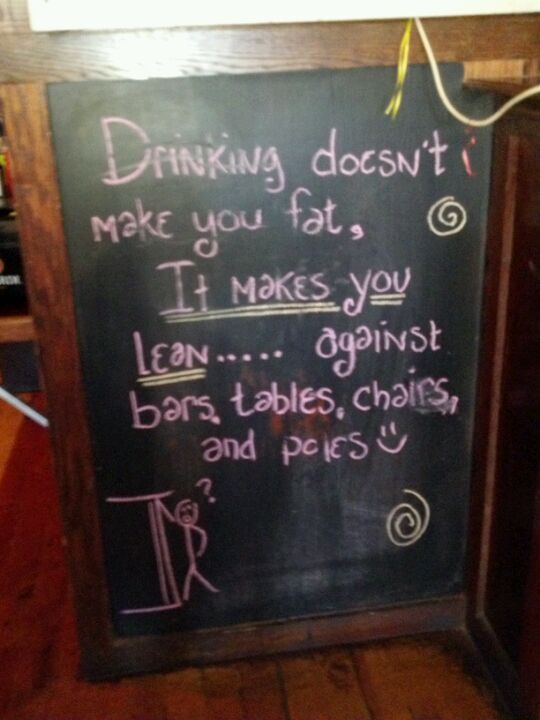 Drinking doesn't
make you fat,
It makes you
lean..... against
bars, tables, chairs,
and poles
?